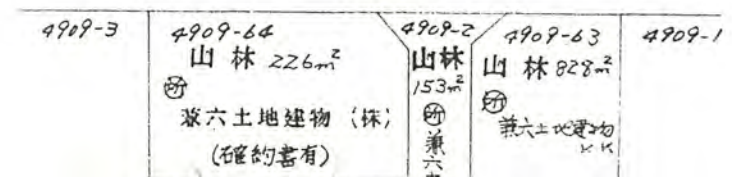 4909-3
4909-64
山林 226㎡
㊟
兼六土地建物(株)
(確約書有)
4909-2
山林
153㎡
兼六
4909-63
山林 828㎡
兼六土地建物
KK
4909-1